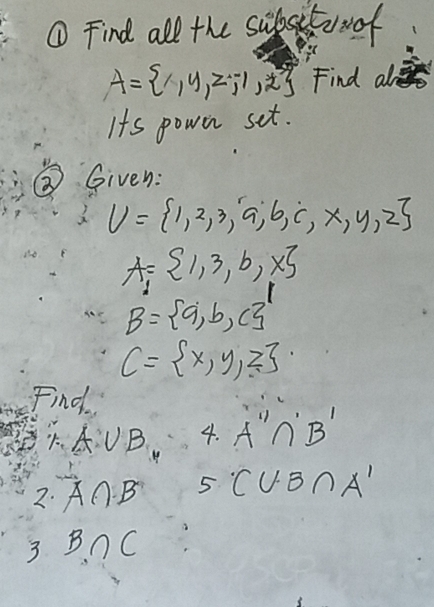 ① Find all the subsets of
A = { , y, z, 1, 2} Find also
its power set.
② Given:
U = {1, 2, 3, a, b, c, x, y, z}
A = {1, 3, b, x}
B = {a, b, c}
C = {x, y, z}
Find
1. A ∪ B 4. A' ∩ B'
2. A ∩ B 5 C ∪ B ∩ A'
3 B ∩ C